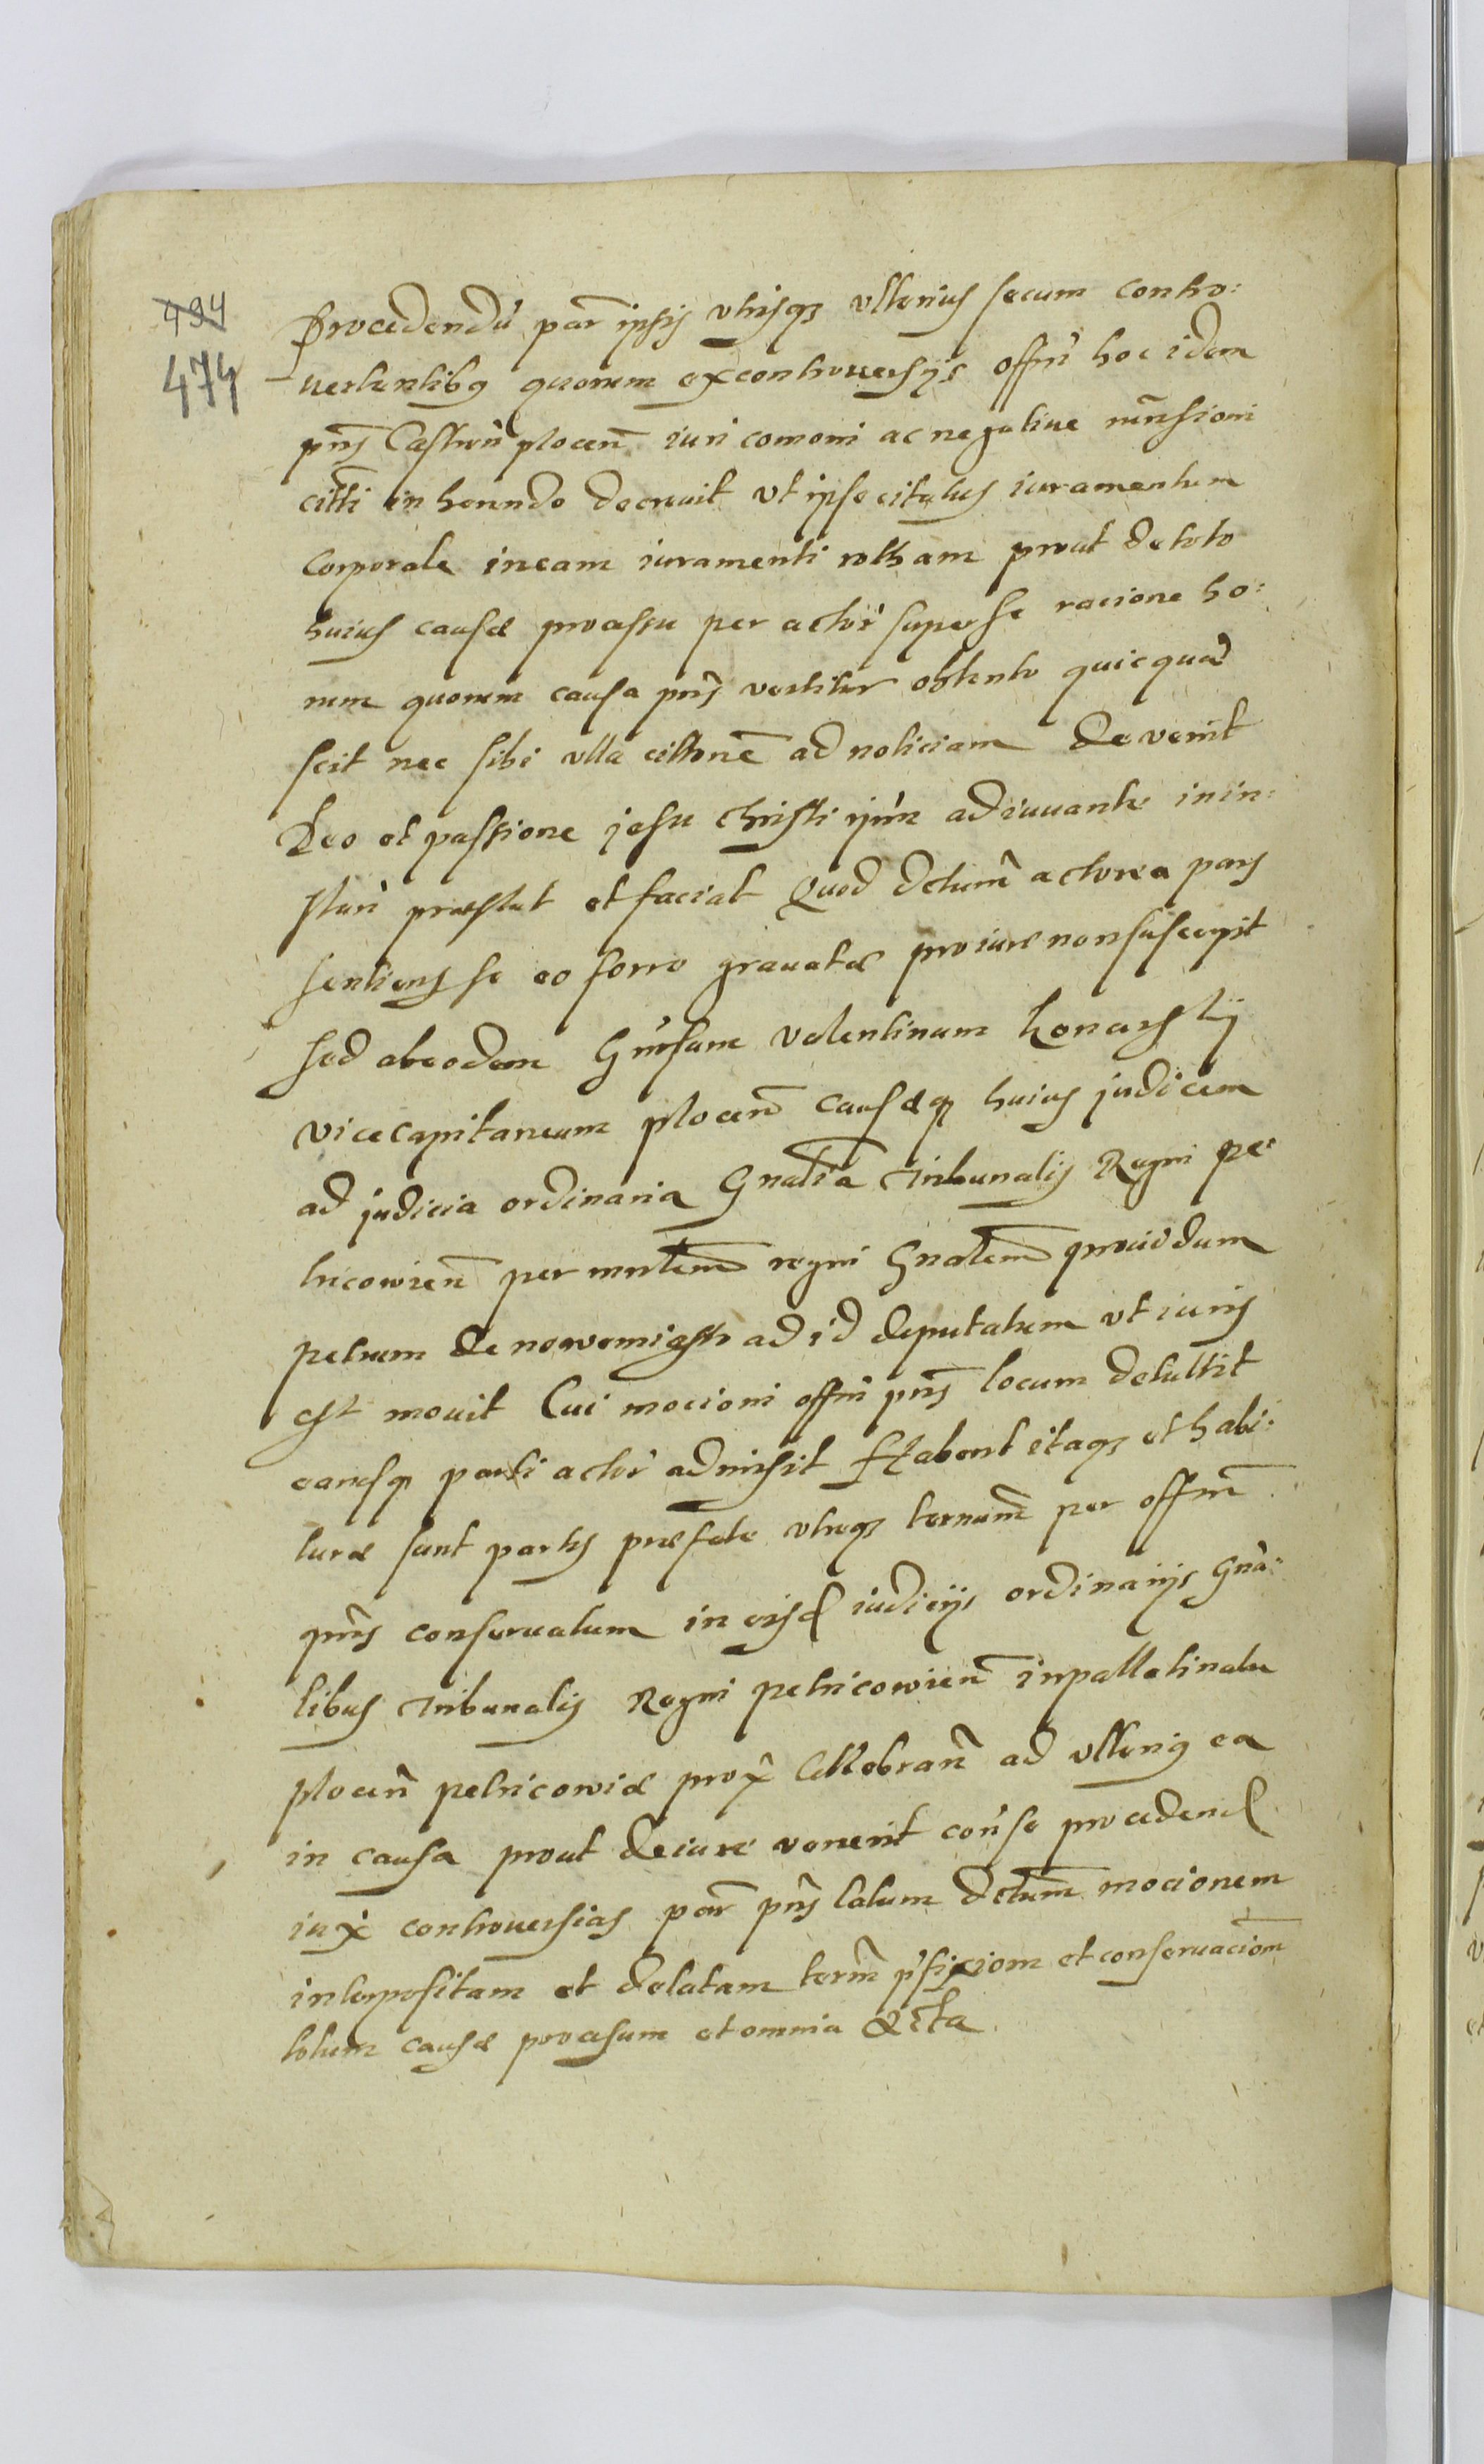 494
474
procedendũ par̃ ipsis vtrisq3 vlterius secum contro:
uertentibq quorum ex controuersijs offm̃ hoc idem
pñs Castreñ plocen̄ iuri comoni ac negatiue
citti in herendo decreuit vt ipse citatus iuramentum
Corporale in eam iuramenti rotham prout de toto
huius causæ processu per actor̃ super se racione ho:
rum quorum causa pñs vertitur obtento quicquã
scit nec sibi vlla cittone ad noticiam devenit
Deo et passione jesu Christi adiuuante in in:
stan̄ præstat et faciat Quod dctum̄ actorea pars
sentiens se eo forro grauatæ pro iure non suscepit
sed ab eodem Gñrsum valentinum konarskij
vicecapitaneum plocen̄ causæq3 huius judicem
ad judicia ordinaria Gnalia Tribunalis Regni pe:
tricowien̄ per regni Gnalem prouidum
petrum de nowomiasto ad id deputatum vt iuris
est mouit Cui mocioni offm̃ pñs locum detullit
eamq3 parti actor̃ admisit Habent itaq3 et habi:
turæ sunt partes præfate vtreq3 per offm̃
pñs conseruatum in eisd iudicijs ordinarijs Gnã:
libus Tribunalis Regni petricowien̄ in pallatinatu
plocen̄ petricowiæ prox̃ Cellebran̄ ad vlteriq ea
in causa prout de iure venerit coñ se procedend
iux̃ controuersias par̃ pñs latum dctum̄ mocionem
interpositam et delatam term̃ pfixiom̄ et conseruaciom̄
totum causæ processum et omnia acta